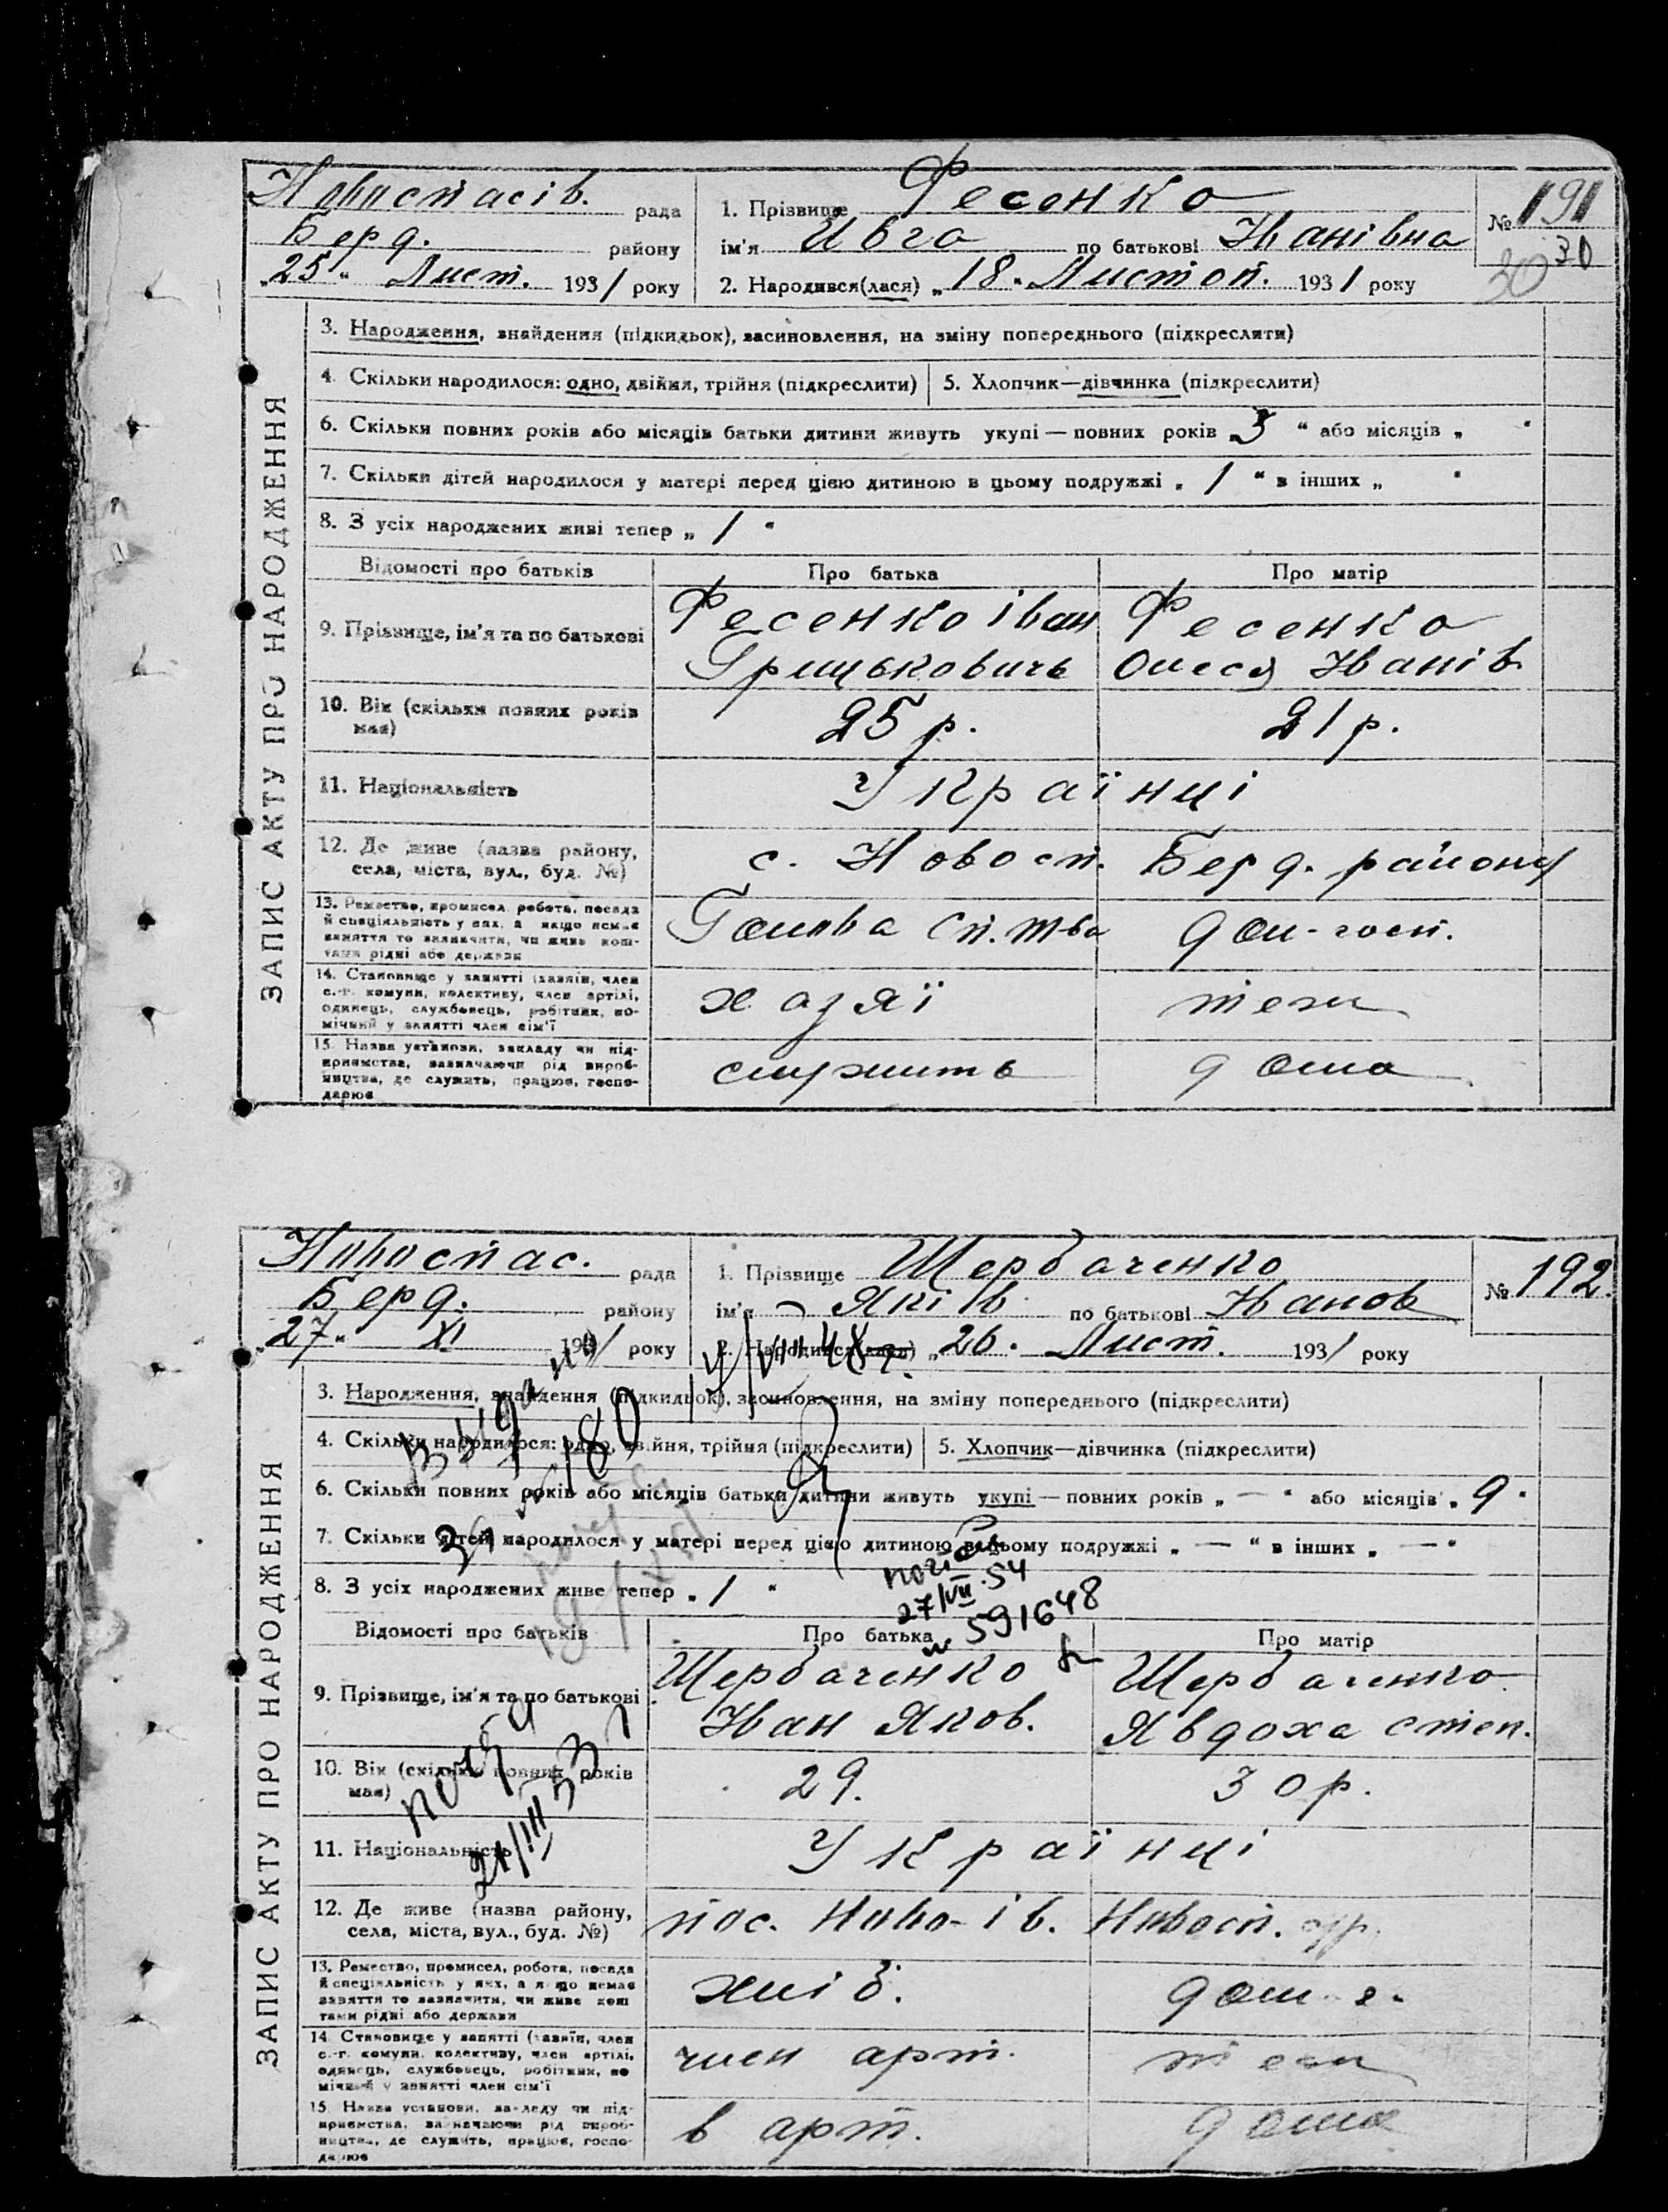 Новоспасів. рада
Берд. району
„25“ Лист. 1931 року
1. Прізвище Фесенко
ім'я Ивга по батькові Іванівна
2. Народився(лася) „18“ Листоп. 1931 року
№ 191
30 30
ЗАПИС АКТУ ПРО НАРОДЖЕННЯ
3. Народження, знайдення (підкидьок), засиновлення, на зміну попереднього (підкреслити)
4. Скільки народилося: одно, двійня, трійня (підкреслити) 5. Хлопчик—дівчинка (підкреслити)
6. Скільки повних років або місяців батьки дитини живуть укупі — повних років „3“ або місяців „ “
7. Скільки дітей народилося у матері перед цією дитиною в цьому подружжі „1“ в інших „ “
8. З усіх народжених живі тепер „1“
Відомості про батьків Про батька Про матір
9. Прізвище, ім'я та по батькові
Фесенко Іван
Грицькович
Фесенко
Олеся Іванів.
10. Вік (скільки повних років має) 25 р. 21 р.
11. Національність Українці
12. Де живе (назва району, села, міста, вул., буд. №) с. Новосп. Берд. району
13. Ремество, промисел, робота, посада
й спеціяльність у них, а якщо немає
заняття то зазначити, чи живе кош-
тами рідні або держави
Голова сп. тва дом-госп.
14. Становище у занятті (хазяїн, член
с.-г. комуни, колективу, член артілі,
одинець, службовець, робітник, по-
мічний у занятті член сім'ї
хазяї теж
15. Назва установи, закладу чи під-
приємства, зазначаючи рід вироб-
ництва, де служить, працює, госпо-
дарює
служить дома
Новоспас. рада
Берд. району
„27“ XI 1931 року
1. Прізвище Щербаченко
ім'я Яків по батькові Іванов
2. Народився(лася) „26“ Лист. 1931 року
№ 192.
ЗАПИС АКТУ ПРО НАРОДЖЕННЯ
3. Народження, знайдення (підкидьок), засиновлення, на зміну попереднього (підкреслити)
4. Скільки народилося: одно, двійня, трійня (підкреслити) 5. Хлопчик—дівчинка (підкреслити)
6. Скільки повних років або місяців батьки дитини живуть укупі — повних років „—“ або місяців „9“
7. Скільки дітей народилося у матері перед цією дитиною в цьому подружжі „—“ в інших „—“
8. З усіх народжених живе тепер „1“
27/VII.54
591648
Відомості про батьків Про батька Про матір
9. Прізвище, ім'я та по батькові
Щербаченко
Іван Яков.
Щербаченко
Явдоха Степ.
10. Вік (скільки повних років має) 29. 30 р.
21/III 53
11. Національність Українці
12. Де живе (назва району, села, міста, вул., буд. №) пос. Ново-ів. Новосп.
13. Ремество, промисел, робота, посада
й спеціяльність у них, а якщо немає
заняття то зазначити, чи живе кош
тами рідні або держави
хліб. дом. г.
14. Становище у занятті (хазяїн, член
с.-г. комуни, колективу, член артілі,
одинець, службовець, робітник, по
мічний у занятті член сім'ї
член арт. теж
15. Назва установи, закладу чи під-
приємства, зазначаючи рід вироб-
ництва, де служить, працює, госпо-
дарює
в арт. дома